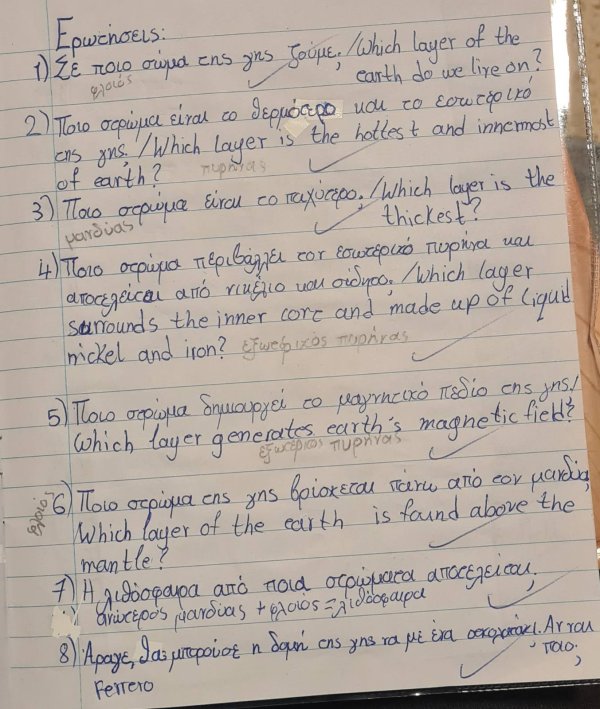 Ερωτήσεις:
1) Σε ποιο σώμα της γης ζούμε; /Which layer of the
φλοιός earth do we live on?
2) Ποιο στρώμα είναι το θερμότερο και το εσωτερικό
της γης; /Which layer is the hottest and innermost
of earth? πυρήνας
3) Ποιο στρώμα είναι το παχύτερο; /Which layer is the
μανδύας thickest?
4) Ποιο στρώμα περιβάλλει τον εσωτερικό πυρήνα και
αποτελείται από νικέλιο και σίδηρο; /Which layer
surrounds the inner core and made up of liquid
nickel and iron? εξωτερικός πυρήνας
5) Ποιο στρώμα δημιουργεί το μαγνητικό πεδίο της γης;/
Which layer generates earth's magnetic field?
εξωτερικος πυρήνας
φλοιός 6) Ποιο στρώμα της γης βρίσκεται πάνω από τον μανδύα;
Which layer of the earth is found above the
mantle?
7) Η λιθόσφαιρα από ποια στρώματα αποτελείται;
ανώτερος μανδύας + φλοιός = λιθόσφαιρα
8) Άραγε, θα μπορούσε η δομή της γης να με ένα σοκολατάκι; Αν ναι
ποιο;
Ferrero